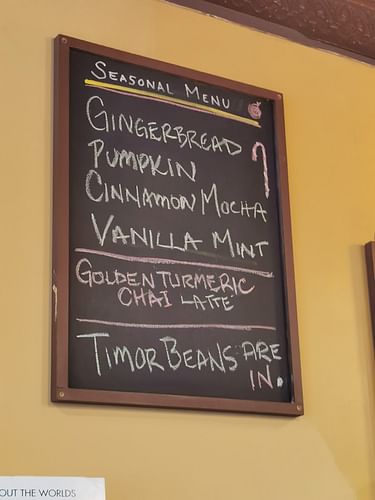 SEASONAL MENU
GINGERBREAD
PUMPKIN
CINNAMON MOCHA
VANILLA MINT
GOLDEN TURMERIC
CHAI LATTE
TIMOR BEANS ARE
IN.
OUT THE WORLDS